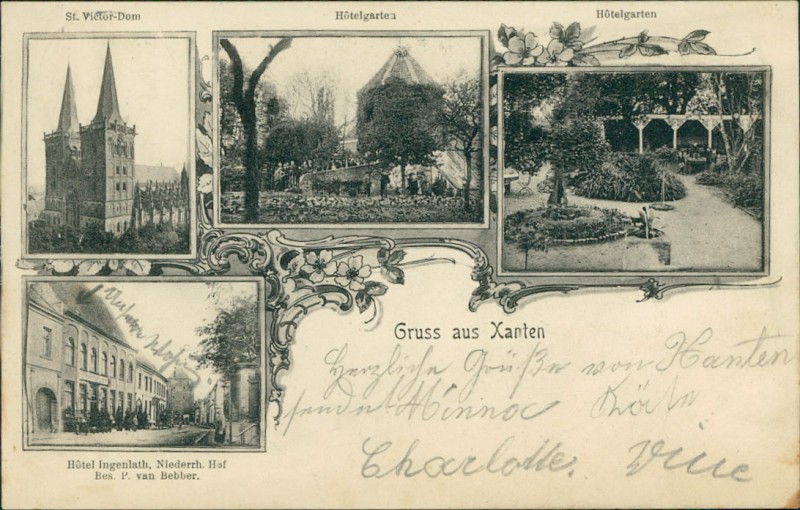 St. Victor-Dom
Hôtelgarten
Hôtelgarten
Gruss aus Xanten
Herzliche Grüße von Xanten
sendet Minna Käte
Charlotte.
Hôtel Ingenlath, Niederrh. Hof
Bes. P. van Bebber.